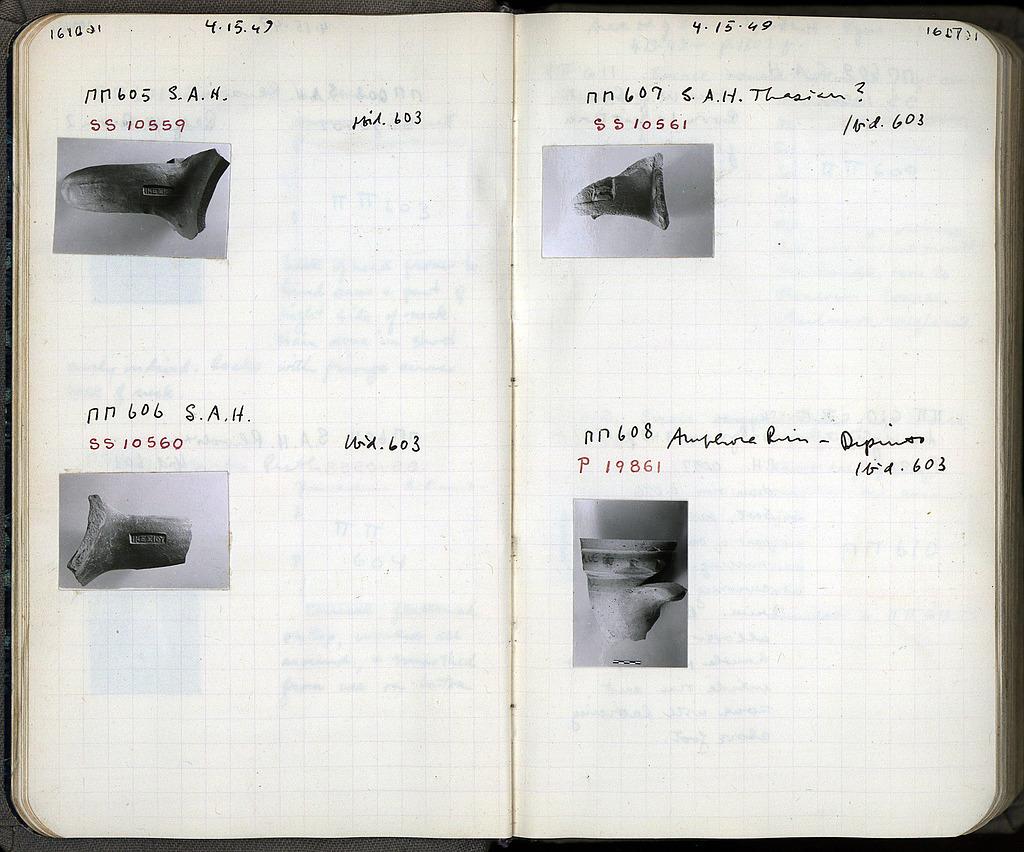 4.15.49
ΠΠ605 S.A.H.
SS 10559 Ibid. 603
ΠΠ 606 S.A.H.
SS 10560 Ibid. 603
4.15.49
ΠΠ607 S.A.H. Thasian?
SS 10561 Ibid. 603
ΠΠ608 Amphora Rim - Dipinto
P 19861 Ibid. 603